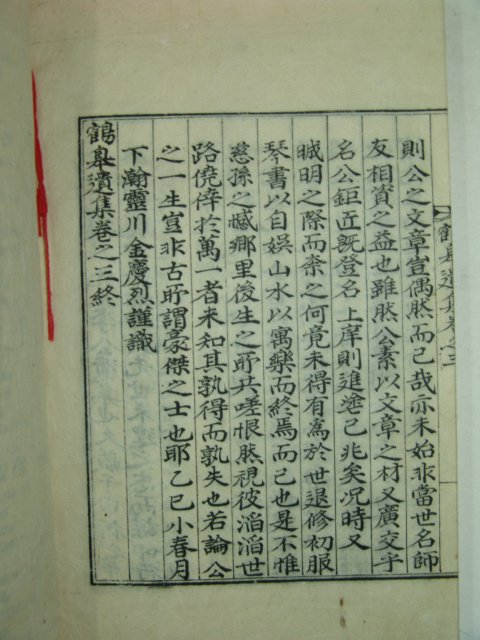 則公之文章豈偶然而已哉亦未始非當世名師
友相資之益也雖然公素以文章之材又廣交乎
名公鉅匠旣登名上庠則進塗已兆矣况時又
晠明之際而柰之何竟未得有爲於世退修初服
琴書以自娛山水以寓樂而終焉而已也是不惟
慈孫之憾鄉里後生之所共嗟恨然視彼滔滔世
路僥倖於萬一者未知其孰得而孰失也若論公
之一生豈非古所謂豪傑之士也耶乙巳小春月
下瀚靈川金慶烈謹識
鶴皐遺集卷之三終
鶴皐遺集卷之三